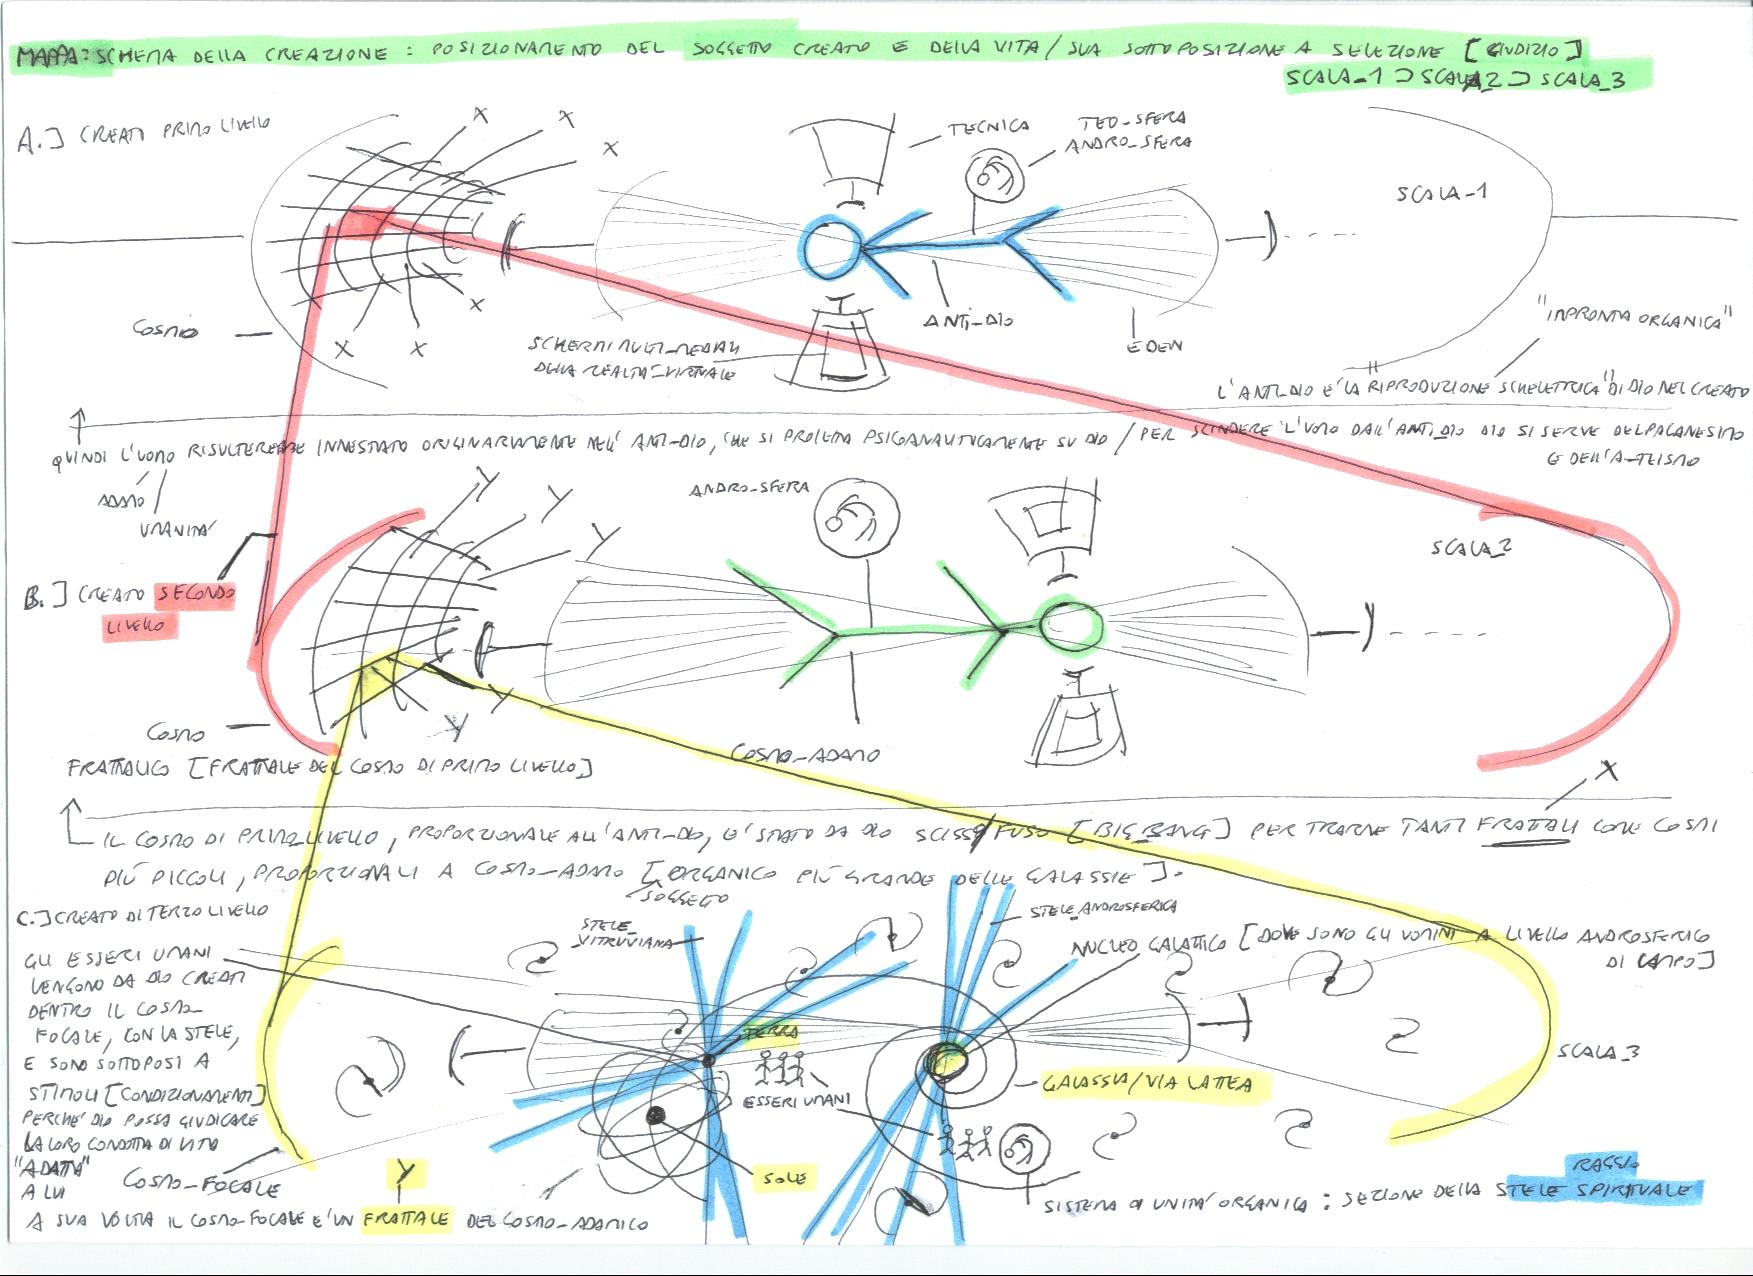 MAPPA: SCHEMA DELLA CREAZIONE : POSIZIONAMENTO DEL SOGGETTO CREATO E DELLA VITA / SUA SOTTOPOSIZIONE A SELEZIONE [GIUDIZIO]
SCALA_1 ⊃ SCALA_2 ⊃ SCALA_3
A.] CREATI PRIMO LIVELLO
X
X
X
TECNICA
TEO_SFERA
ANDRO_SFERA
SCALA_1
COSMO
X
X
X
SCHERMI MULTI_MEDIALI
DELLA REALTÀ_VIRTUALE
ANTI_DIO
EDEN
"IMPRONTA ORGANICA"
L'ANTI_DIO E' LA "RIPRODUZIONE SCHELETTRICA" DI DIO NEL CREATO
QUINDI L'UOMO RISULTEREBBE INNESTATO ORIGINARIAMENTE NELL' ANTI-DIO, CHE SI PROIETTA PSICOANALITICAMENTE SU DIO / PER SCINDERE L'UOMO DALL'ANTI_DIO DIO SI SERVE DEL PAGANESIMO
E DELL'A-TEISMO
ADAMO
UMANITÀ
Y
Y
Y
ANDRO-SFERA
SCALA_2
B.] CREATO SECONDO
LIVELLO
Y
Y
COSMO
FRATTALICO [FRATTALE DEL COSMO DI PRIMO LIVELLO]
COSMO_ADAMO
X
IL COSMO DI PRIMO LIVELLO, PROPORZIONALE ALL'ANTI-DIO, E' STATO DA DIO SCISSO/FUSO [BIG BANG] PER TRARNE TANTI FRATTALI COME COSMI
PIÙ PICCOLI, PROPORZIONALI A COSMO-ADAMO [ORGANICO PIÙ GRANDE DELLE GALASSIE].
SOGGETTO
C.] CREATO DI TERZO LIVELLO
STELE_VITRUVIANA
STELE_ANDROSFERICA
NUCLEO GALATTICO [DOVE SONO GLI UOMINI A LIVELLO ANDROSFERICO
DI CAMPO]
GLI ESSERI UMANI
VENGONO DA DIO CREATI
DENTRO IL COSMO_
FOCALE, CON LA STELE,
E SONO SOTTOPOSTI A
STIMOLI [CONDIZIONAMENTI]
PERCHE' DIO POSSA GIUDICARE
LA LORO CONDOTTA DI VITA
"ADATTA"
A LUI
TERRA
ESSERI UMANI
GALASSIA/VIA LATTEA
SCALA_3
COSMO_FOCALE
Y
SOLE
RAGGIO
SISTEMA DI UNITA' ORGANICA : SEZIONE DELLA STELE SPIRITUALE
A SUA VOLTA IL COSMO-FOCALE E' UN FRATTALE DEL COSMO_ADAMICO